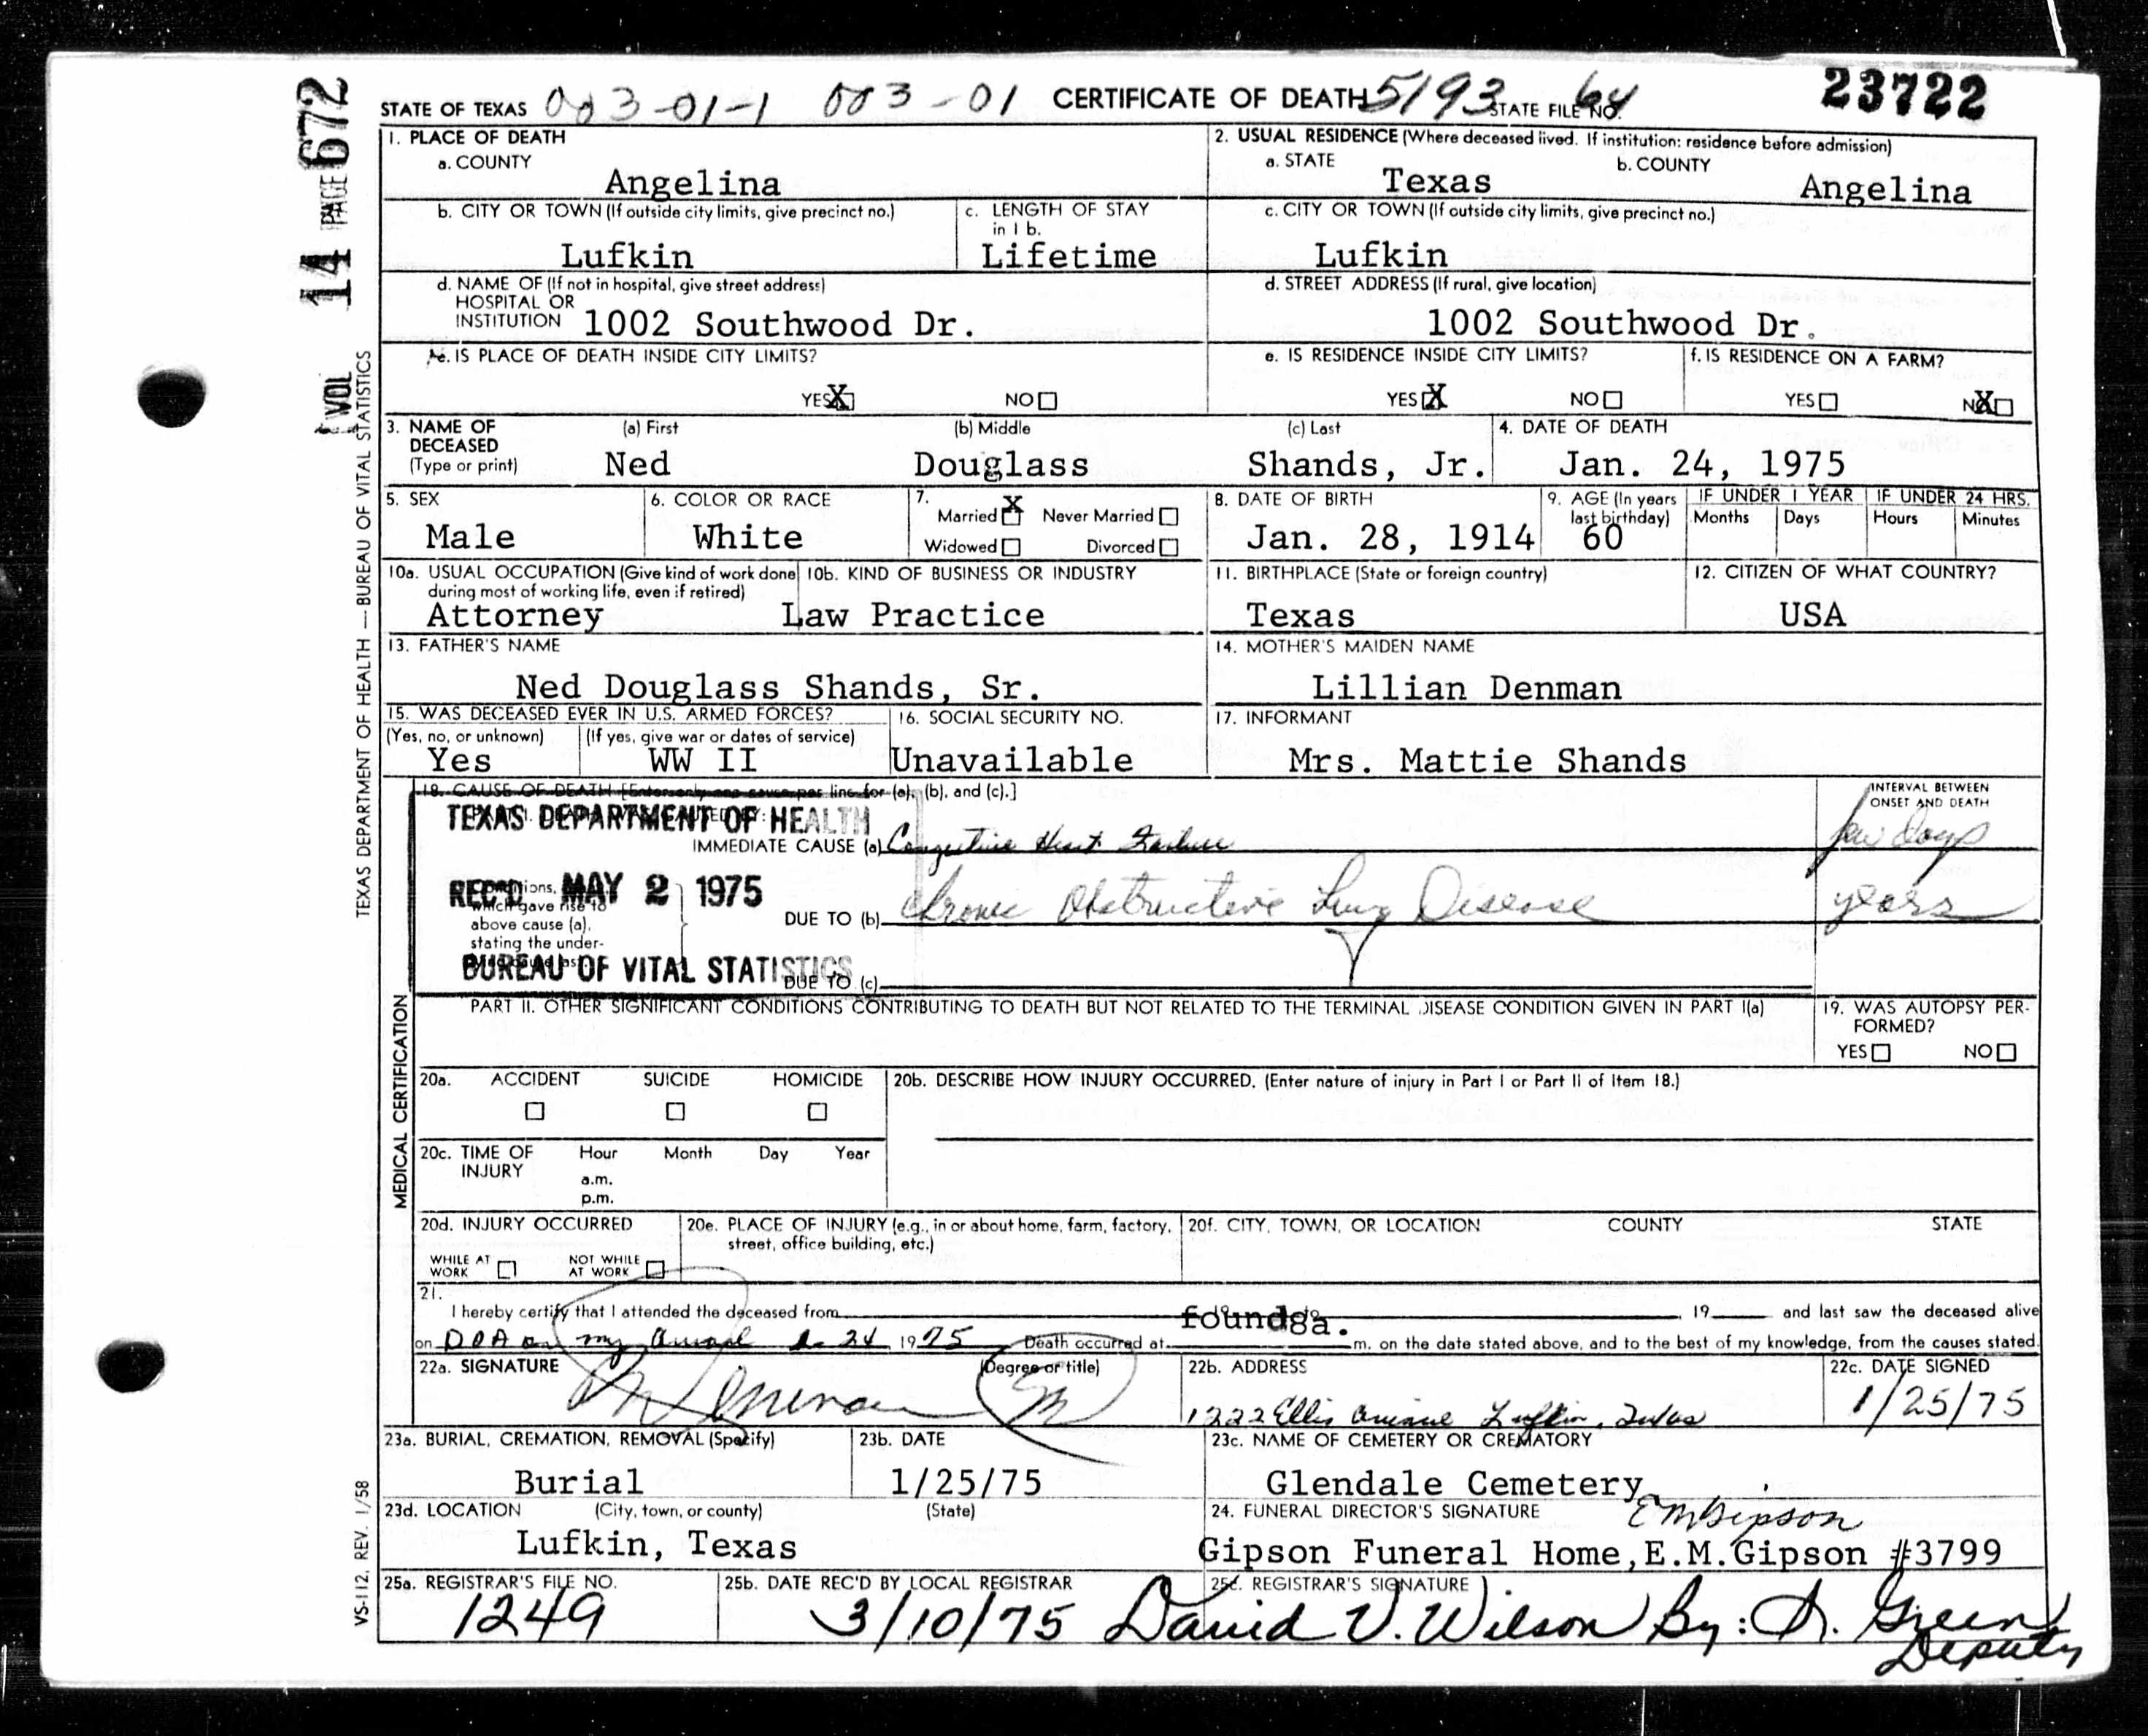 STATE OF TEXAS 003-01-1 003-01 CERTIFICATE OF DEATH 5193 STATE FILE NO. 64 23722
VOL 14 PAGE 672
TEXAS DEPARTMENT OF HEALTH — BUREAU OF VITAL STATISTICS
1. PLACE OF DEATH
a. COUNTY
Angelina
2. USUAL RESIDENCE (Where deceased lived. If institution: residence before admission)
a. STATE
Texas
b. COUNTY
Angelina
b. CITY OR TOWN (If outside city limits, give precinct no.)
Lufkin
c. LENGTH OF STAY
in 1 b.
Lifetime
c. CITY OR TOWN (If outside city limits, give precinct no.)
Lufkin
d. NAME OF (If not in hospital, give street address)
HOSPITAL OR
INSTITUTION 1002 Southwood Dr.
d. STREET ADDRESS (If rural, give location)
1002 Southwood Dr.
e. IS PLACE OF DEATH INSIDE CITY LIMITS?
YES X NO
e. IS RESIDENCE INSIDE CITY LIMITS?
YES X NO
f. IS RESIDENCE ON A FARM?
YES NO X
3. NAME OF
DECEASED
(Type or print)
(a) First
Ned
(b) Middle
Douglass
(c) Last
Shands, Jr.
4. DATE OF DEATH
Jan. 24, 1975
5. SEX
Male
6. COLOR OR RACE
White
7.
Married X Never Married
Widowed Divorced
8. DATE OF BIRTH
Jan. 28, 1914
9. AGE (In years
last birthday)
60
IF UNDER 1 YEAR
Months Days
IF UNDER 24 HRS.
Hours Minutes
10a. USUAL OCCUPATION (Give kind of work done
during most of working life, even if retired)
Attorney
10b. KIND OF BUSINESS OR INDUSTRY
Law Practice
11. BIRTHPLACE (State or foreign country)
Texas
12. CITIZEN OF WHAT COUNTRY?
USA
13. FATHER'S NAME
Ned Douglass Shands, Sr.
14. MOTHER'S MAIDEN NAME
Lillian Denman
15. WAS DECEASED EVER IN U.S. ARMED FORCES?
(Yes, no, or unknown)
Yes
(If yes, give war or dates of service)
WW II
16. SOCIAL SECURITY NO.
Unavailable
17. INFORMANT
Mrs. Mattie Shands
MEDICAL CERTIFICATION
18. CAUSE OF DEATH [Enter only one cause per line for (a), (b), and (c).]
INTERVAL BETWEEN
ONSET AND DEATH
TEXAS DEPARTMENT OF HEALTH
IMMEDIATE CAUSE (a) Congestive Heart Failure few days
REC'D MAY 2 1975
which gave rise to
above cause (a),
stating the under-
DUE TO (b) Chronic Obstructive Lung Disease years
BUREAU OF VITAL STATISTICS
DUE TO (c)
PART II. OTHER SIGNIFICANT CONDITIONS CONTRIBUTING TO DEATH BUT NOT RELATED TO THE TERMINAL DISEASE CONDITION GIVEN IN PART I(a)
19. WAS AUTOPSY PER-
FORMED?
YES NO
20a. ACCIDENT SUICIDE HOMICIDE
20b. DESCRIBE HOW INJURY OCCURRED. (Enter nature of injury in Part I or Part II of Item 18.)
20c. TIME OF
INJURY
Hour Month Day Year
a.m.
p.m.
20d. INJURY OCCURRED
WHILE AT
WORK
NOT WHILE
AT WORK
20e. PLACE OF INJURY (e.g., in or about home, farm, factory,
street, office building, etc.)
20f. CITY, TOWN, OR LOCATION COUNTY STATE
21.
I hereby certify that I attended the deceased from to , 19 and last saw the deceased alive
found 8a.
on DOA on my arrival 1-24 1975 Death occurred at m. on the date stated above, and to the best of my knowledge, from the causes stated.
22a. SIGNATURE (Degree or title)
22b. ADDRESS
1222 Ellis Avenue Lufkin, Texas
22c. DATE SIGNED
1/25/75
23a. BURIAL, CREMATION, REMOVAL (Specify)
Burial
23b. DATE
1/25/75
23c. NAME OF CEMETERY OR CREMATORY
Glendale Cemetery
23d. LOCATION (City, town, or county) (State)
Lufkin, Texas
24. FUNERAL DIRECTOR'S SIGNATURE
E M Gipson
Gipson Funeral Home, E.M. Gipson #3799
25a. REGISTRAR'S FILE NO.
1249
25b. DATE REC'D BY LOCAL REGISTRAR
3/10/75
25c. REGISTRAR'S SIGNATURE
David V. Wilson By: A. Green
Deputy
VS-112. REV. 1/58